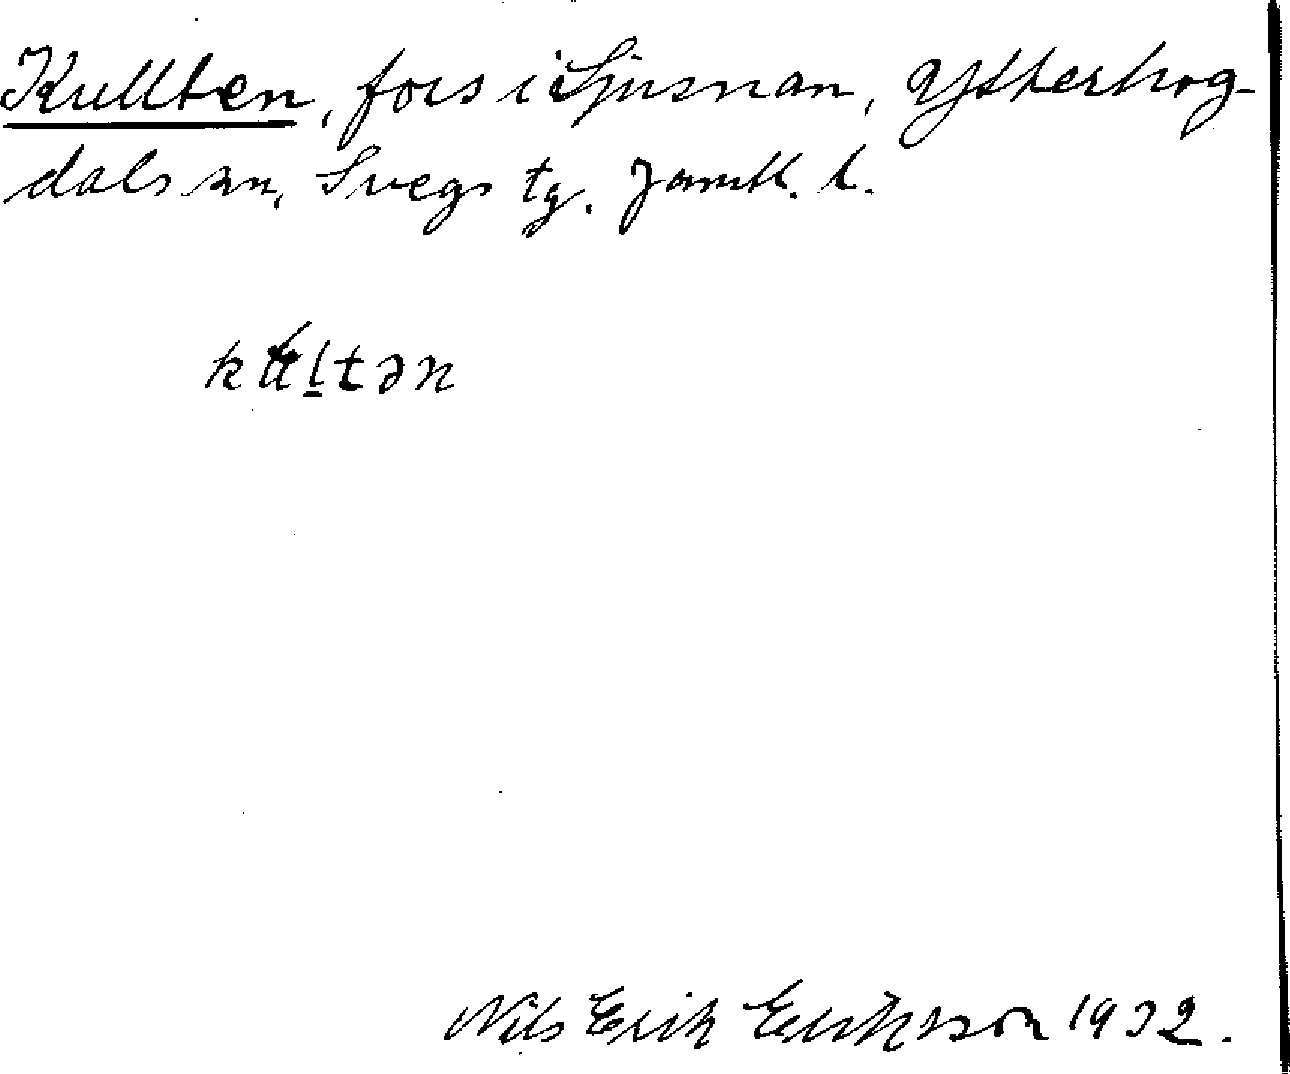 Kullten, fors i Ljusnan, Ytterhog-
dals sn, Svegs tg. Jämtl. l.
ku̠l̠tən
Nils Erik Eriksson 1932.